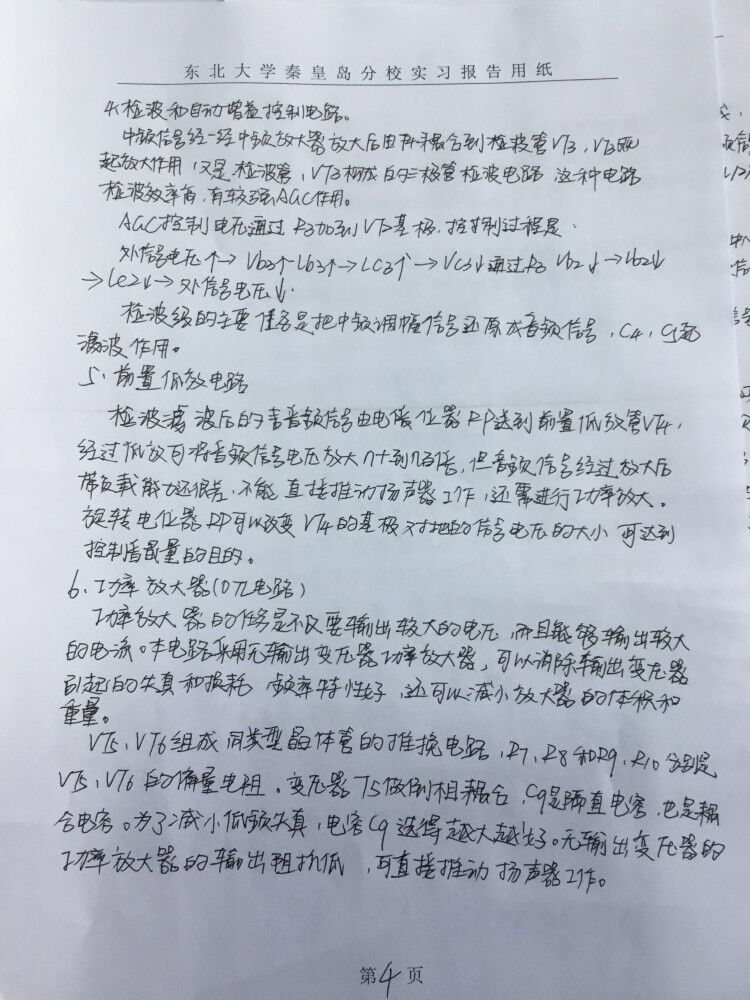 东北大学秦皇岛分校实习报告用纸
4.检波和自动增益控制电路。
中频信号经一经中频放大器放大后由T4耦合到检波管VT3，VT3既
起放大作用，又是检波管，VT3构成的三极管检波电路，这种电路
检波效率高，有较强AGC作用。
AGC控制电压通过R3加到VT2基极，控制过程是：
外信号电压↑→Vb3↑Ib3↑→Ic3↑→Vc3↓通过R3 Vb2↓→Ib2↓
→Ic2↓→外信号电压↓.
检波级的主要任务是把中频调幅信号还原成音频信号，C4，C5起
滤波作用。
5.前置低放电路
检波滤波后的音频信号由电位器RP送到前置低放管VT4，
经过低放可将音频信号电压放大几十到几百倍，但音频信号经过放大后
带负载能力还很差，不能直接推动扬声器工作，还需进行功率放大。
旋转电位器RP可以改变VT4的基极对地的信号电压的大小可达到
控制音量的目的。
6.功率放大器(OTL电路)
功率放大器的任务是不仅要输出较大的电压，而且能够输出较大
的电流。本电路采用无输出变压器功率放大器，可以消除输出变压器
引起的失真和损耗，频率特性好，还可以减小放大器的体积和
重量。
VT5、VT6组成同类型晶体管的推挽电路，R7、R8和R9、R10分别是
VT5、VT6的偏量电阻。变压器T5做倒相耦合，C9是隔直电容，也是耦
合电容。为了减小低频失真，电容C9选得越大越好。无输出变压器的
功率放大器的输出阻抗低，可直接推动扬声器工作。
第4页